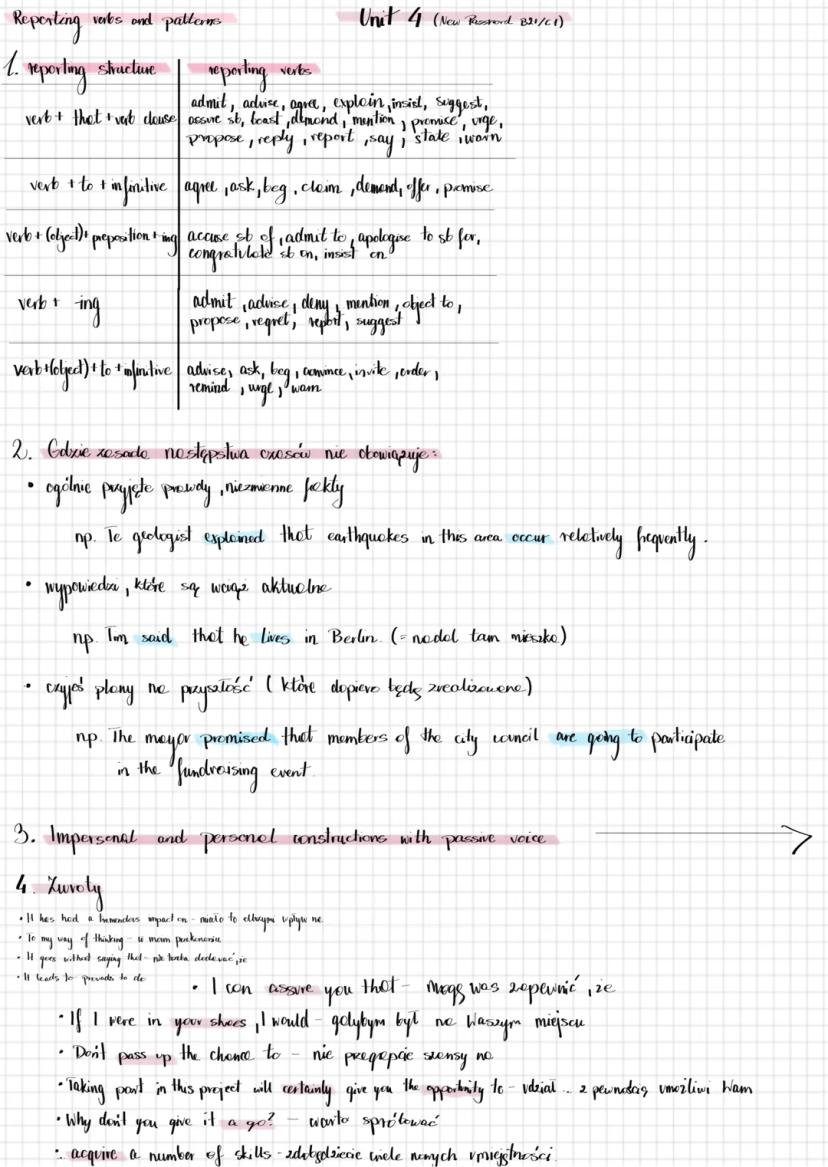 Reporting verbs and patterns
Unit 4 (New Password B2+/C1)
1. reporting structure
reporting verbs
verb + that + verb clause
admit, advise, agree, explain, insist, suggest,
assure sb, boast, demand, mention, promise, urge,
propose, reply, report, say, state, warn
verb + to + infinitive
agree, ask, beg, claim, demand, offer, promise
verb + (object) + preposition + ing
accuse sb of, admit to, apologise to sb for,
congratulate sb on, insist on
verb + -ing
admit, advise, deny, mention, object to,
propose, regret, report, suggest
verb + (object) + to + infinitive
advise, ask, beg, convince, invite, order,
remind, urge, warn
2. Gdzie zasada następstwa czasów nie obowiązuje:
• ogólnie przyjęte prawdy, niezmienne fakty
np. Te geologist explained that earthquakes in this area occur relatively frequently.
• wypowiedzi, które są wciąż aktualne
np. Tom said that he lives in Berlin. (= nadal tam mieszka)
• czyjeś plany na przyszłość (które dopiero będą zrealizowane)
np. The mayor promised that members of the city council are going to participate
in the fundraising event.
3. Impersonal and personal constructions with passive voice
4. Zwroty
• It has had a tremendous impact on - miało to olbrzymi wpływ na
• To my way of thinking - w moim przekonaniu
• It goes without saying that - nie trzeba dodawać, że
• It leads to - prowadzi to do
• I can assure you that - mogę was zapewnić, że
• If I were in your shoes, I would - gdybym był na Waszym miejscu
• Don't pass up the chance to - nie przegapcie szansy na
• Taking part in this project will certainly give you the opportunity to - udział ... z pewnością umożliwi Wam
• Why don't you give it a go? - warto spróbować
• acquire a number of skills - zdobędziecie wiele nowych umiejętności.